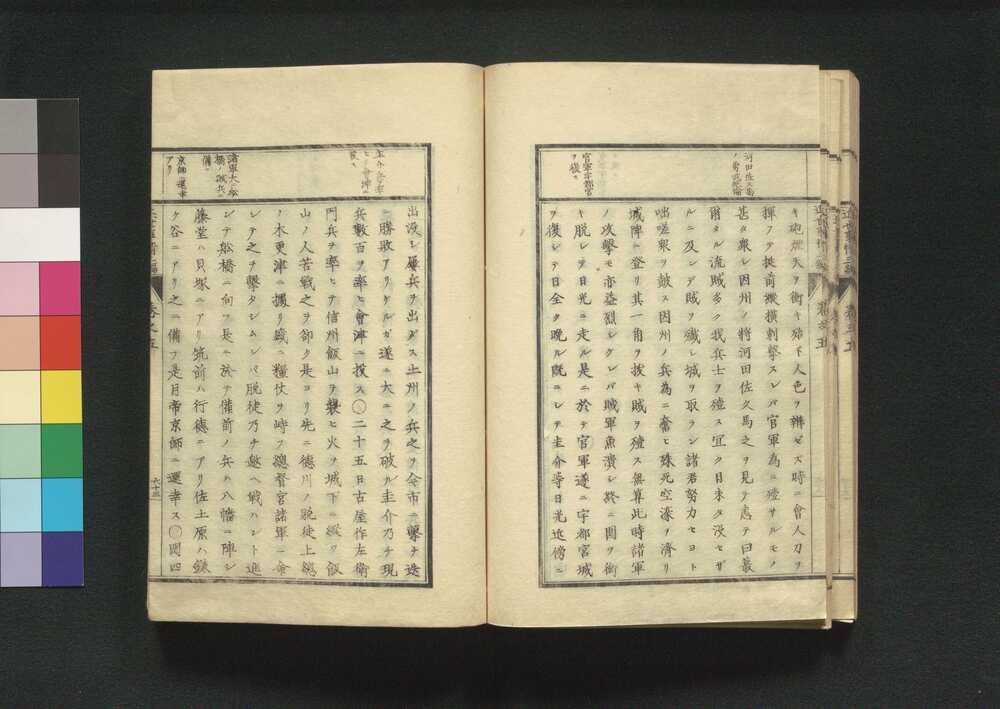 河田佐久馬
ノ勇
官軍宇都宮
ヲ復ス
キ砲煙天ヲ衝キ殆ド人色ヲ辨ゼズ時ニ會人刀ヲ
揮フテ挺前縱横刺撃スレバ官軍為ニ殪サルモノ
甚タ衆シ因州ノ將河田佐久馬之ヲ見テ恚テ曰蕞
爾タル流賊多ク我兵士ヲ殪ス宜ク日未タ沒セザ
ルニ及ンデ賊ヲ殱シ城ヲ取ラン諸君努力セヨト
咄嗟衆ヲ鼓ス因州ノ兵為ニ奮ヒ殊死空濠ヲ濟リ
城陴ニ登リ其一角ヲ拔キ賊ヲ殪ス無算此時諸軍
ノ攻撃モ亦益烈シクシバ賊軍魚潰シ終ニ圍ヲ衝
キ脱シテ日光ニ走ル是ニ於テ官軍遂ニ宇都宮城
ヲ復シテ日全ク晩ル既ニシテ圭介等日光近傍ニ
諸軍大ニ船
橋ノ賊兵ニ
備フ
京師ニ還幸
アリ
出沒シ屢兵ヲ出ダス土州ノ兵之ヲ今市ニ撃チ迭
ニ勝敗アリケルガ遂ニ大ニ之ヲ破ル圭介乃チ現
兵數百ヲ率ヒ會津ニ投ス〇二十五日古屋作左衛
門兵ヲ率ヒテ信州飯山ヲ襲ヒ火ヲ城下ニ縱ツ飯
山ノ人苦戰之ヲ却ク是ヨリ先ニ德川ノ脱徒上總
ノ木更津ニ據リ竊ニ糧仗ヲ峙フ總督官諸軍ニ命
シテ之ヲ撃タシムレバ脱徒乃チ邀ヘ戰ハント進
ンテ船橋ニ向フ長ニ於テ備前ノ兵ハ八幡ニ陣シ
藤堂ハ貝塚ニアリ筑前ハ行德ニアリ佐土原ハ鎌
ケ谷ニアリ之ニ備フ是月帝京師ニ還幸ス〇閏四
卷之五
六十三